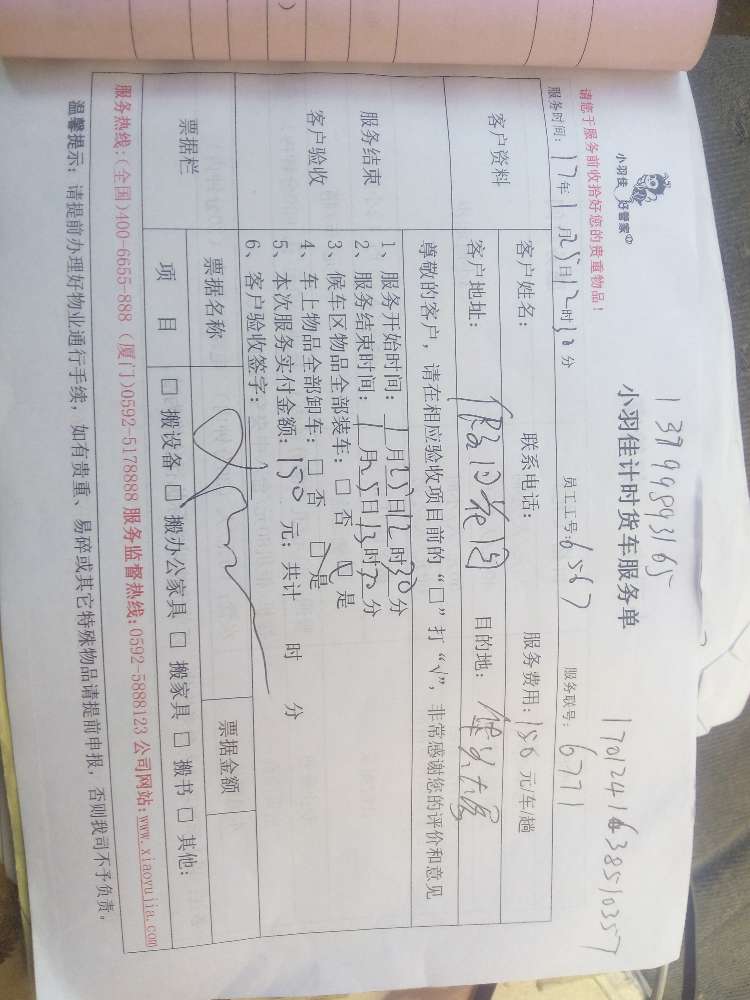 13799893165
17012416385 10357
小羽佳 好管家
小羽佳计时货车服务单
请您于服务前收拾好您的贵重物品！
服务时间：17年1月25日12时30分 员工工号：6567 服务联号：6771
客户资料
客户姓名： 联系电话： 服务费用：150元/车/趟
客户地址： 目的地：
尊敬的客户，请在相应验收项目前的“□”打“√”，非常感谢您的评价和意见
服务结束
客户验收
1、服务开始时间：1月25日12时30分
2、服务结束时间：1月25日13时30分
3、候车区物品全部装车：□否 ☑是
4、车上物品全部卸车：□否 ☑是
5、本次服务实付金额：150元；共计 时 分
6、客户验收签字：
票据栏
票据名称 票据金额
项目 □搬设备 □搬办公家具 □搬家具 □搬书 □其他：
服务热线：(全国)400-6655-888 (厦门)0592-5178888 服务监督热线:0592-5888123 公司网站:www.xiaoyujia.com
温馨提示：请提前办理好物业通行手续，如有贵重、易碎或其它特殊物品请提前申报，否则我司不予负责。